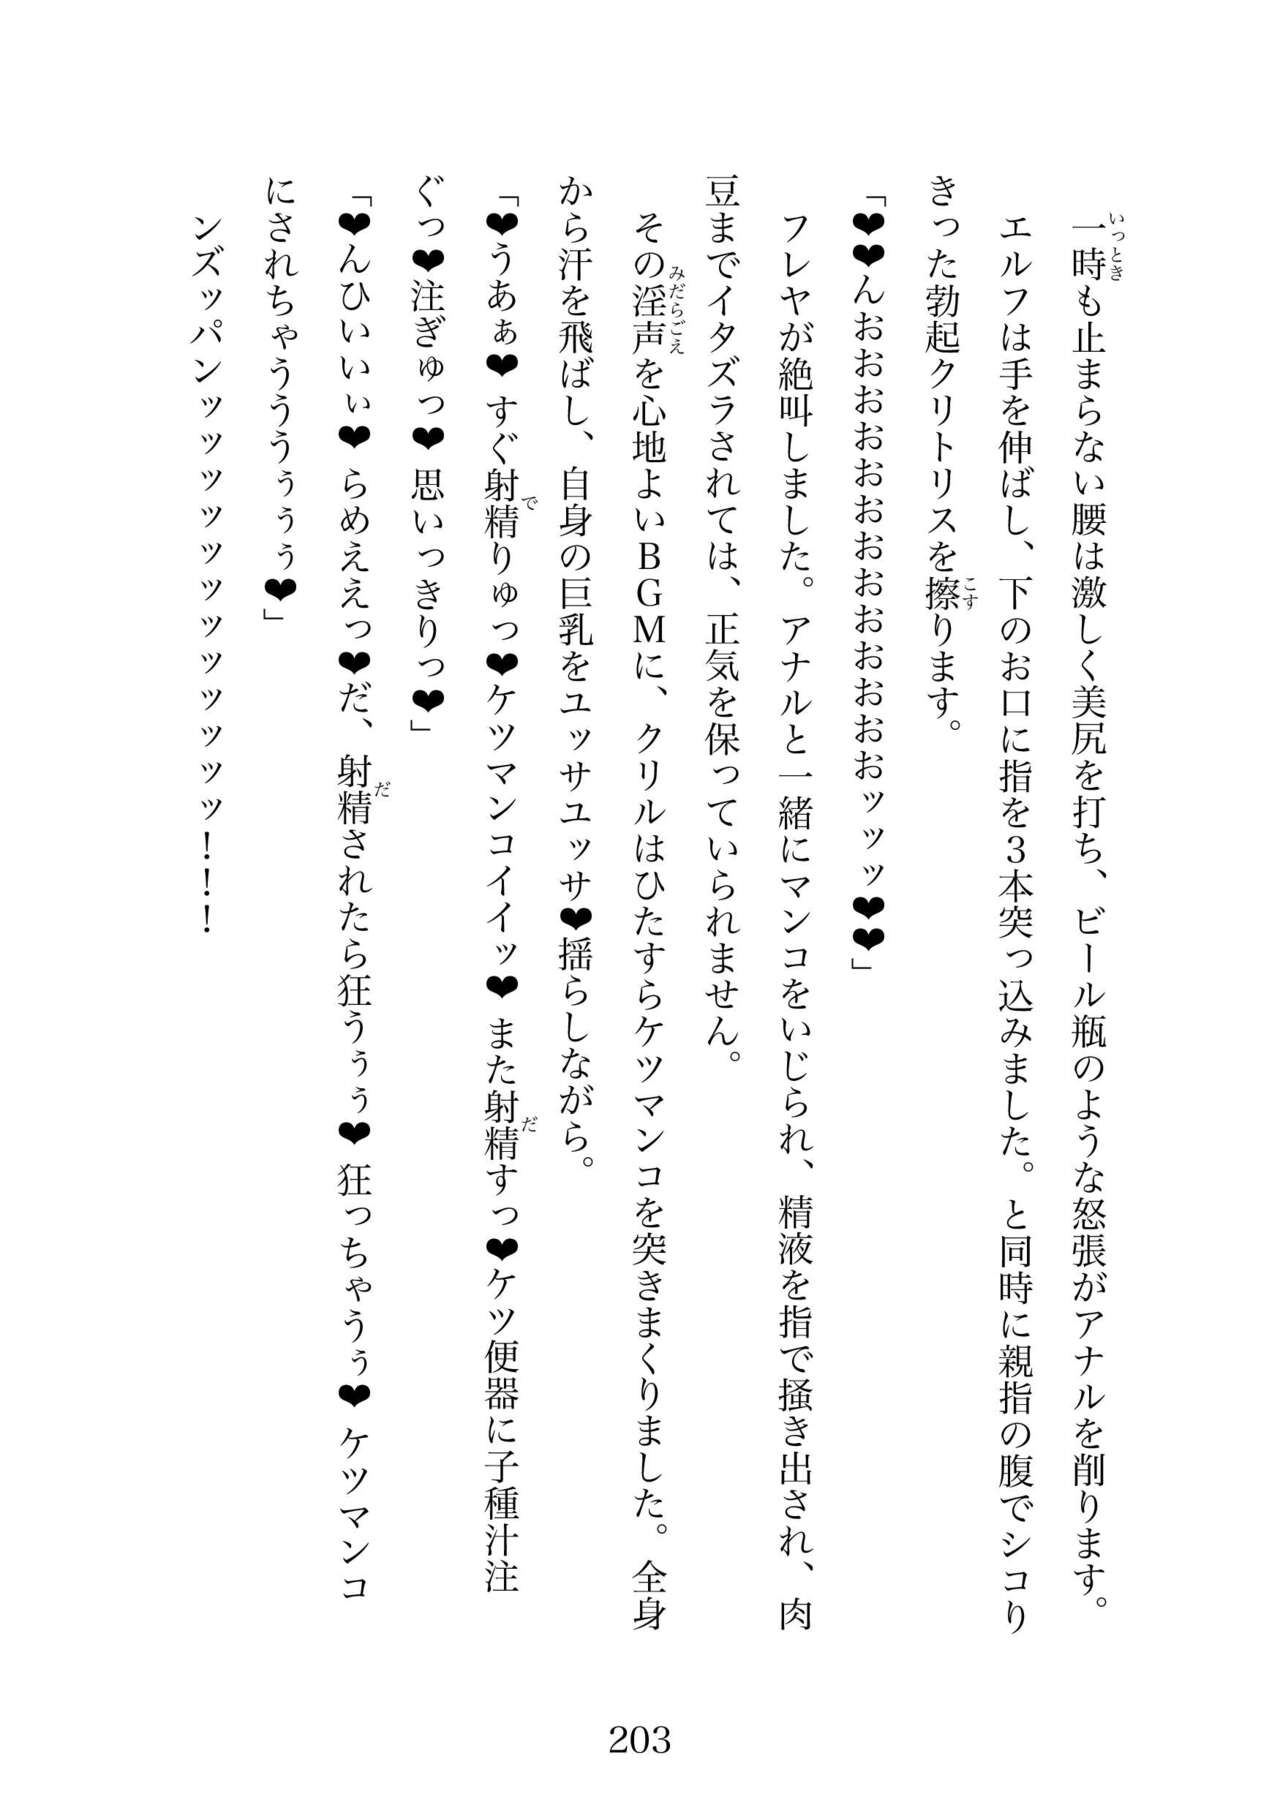 一時も止まらない腰は激しく美尻を打ち、ビール瓶のような怒張がアナルを削ります。
エルフは手を伸ばし、下のお口に指を3本突っ込みました。と同時に親指の腹でシコり
きった勃起クリトリスを擦ります。
「❤❤んおおおおおおおおおおおおおッッッ❤❤」
フレヤが絶叫しました。アナルと一緒にマンコをいじられ、精液を指で掻き出され、肉
豆までイタズラされては、正気を保っていられません。
その淫声を心地よいBGMに、クリルはひたすらケツマンコを突きまくりました。全身
から汗を飛ばし、自身の巨乳をユッサユッサ❤揺らしながら。
「❤うあぁ❤すぐ射精りゅっ❤ケツマンコイイッ❤また射精すっ❤ケツ便器に子種汁注
ぐっ❤注ぎゅっ❤思いっきりっ❤」
「❤んひいいぃ❤らめええっ❤だ、射精されたら狂うぅぅ❤狂っちゃうぅ❤ケツマンコ
にされちゃうううぅぅぅ❤」
ンズッパンッッッッッッッッッッッッ！！！
203